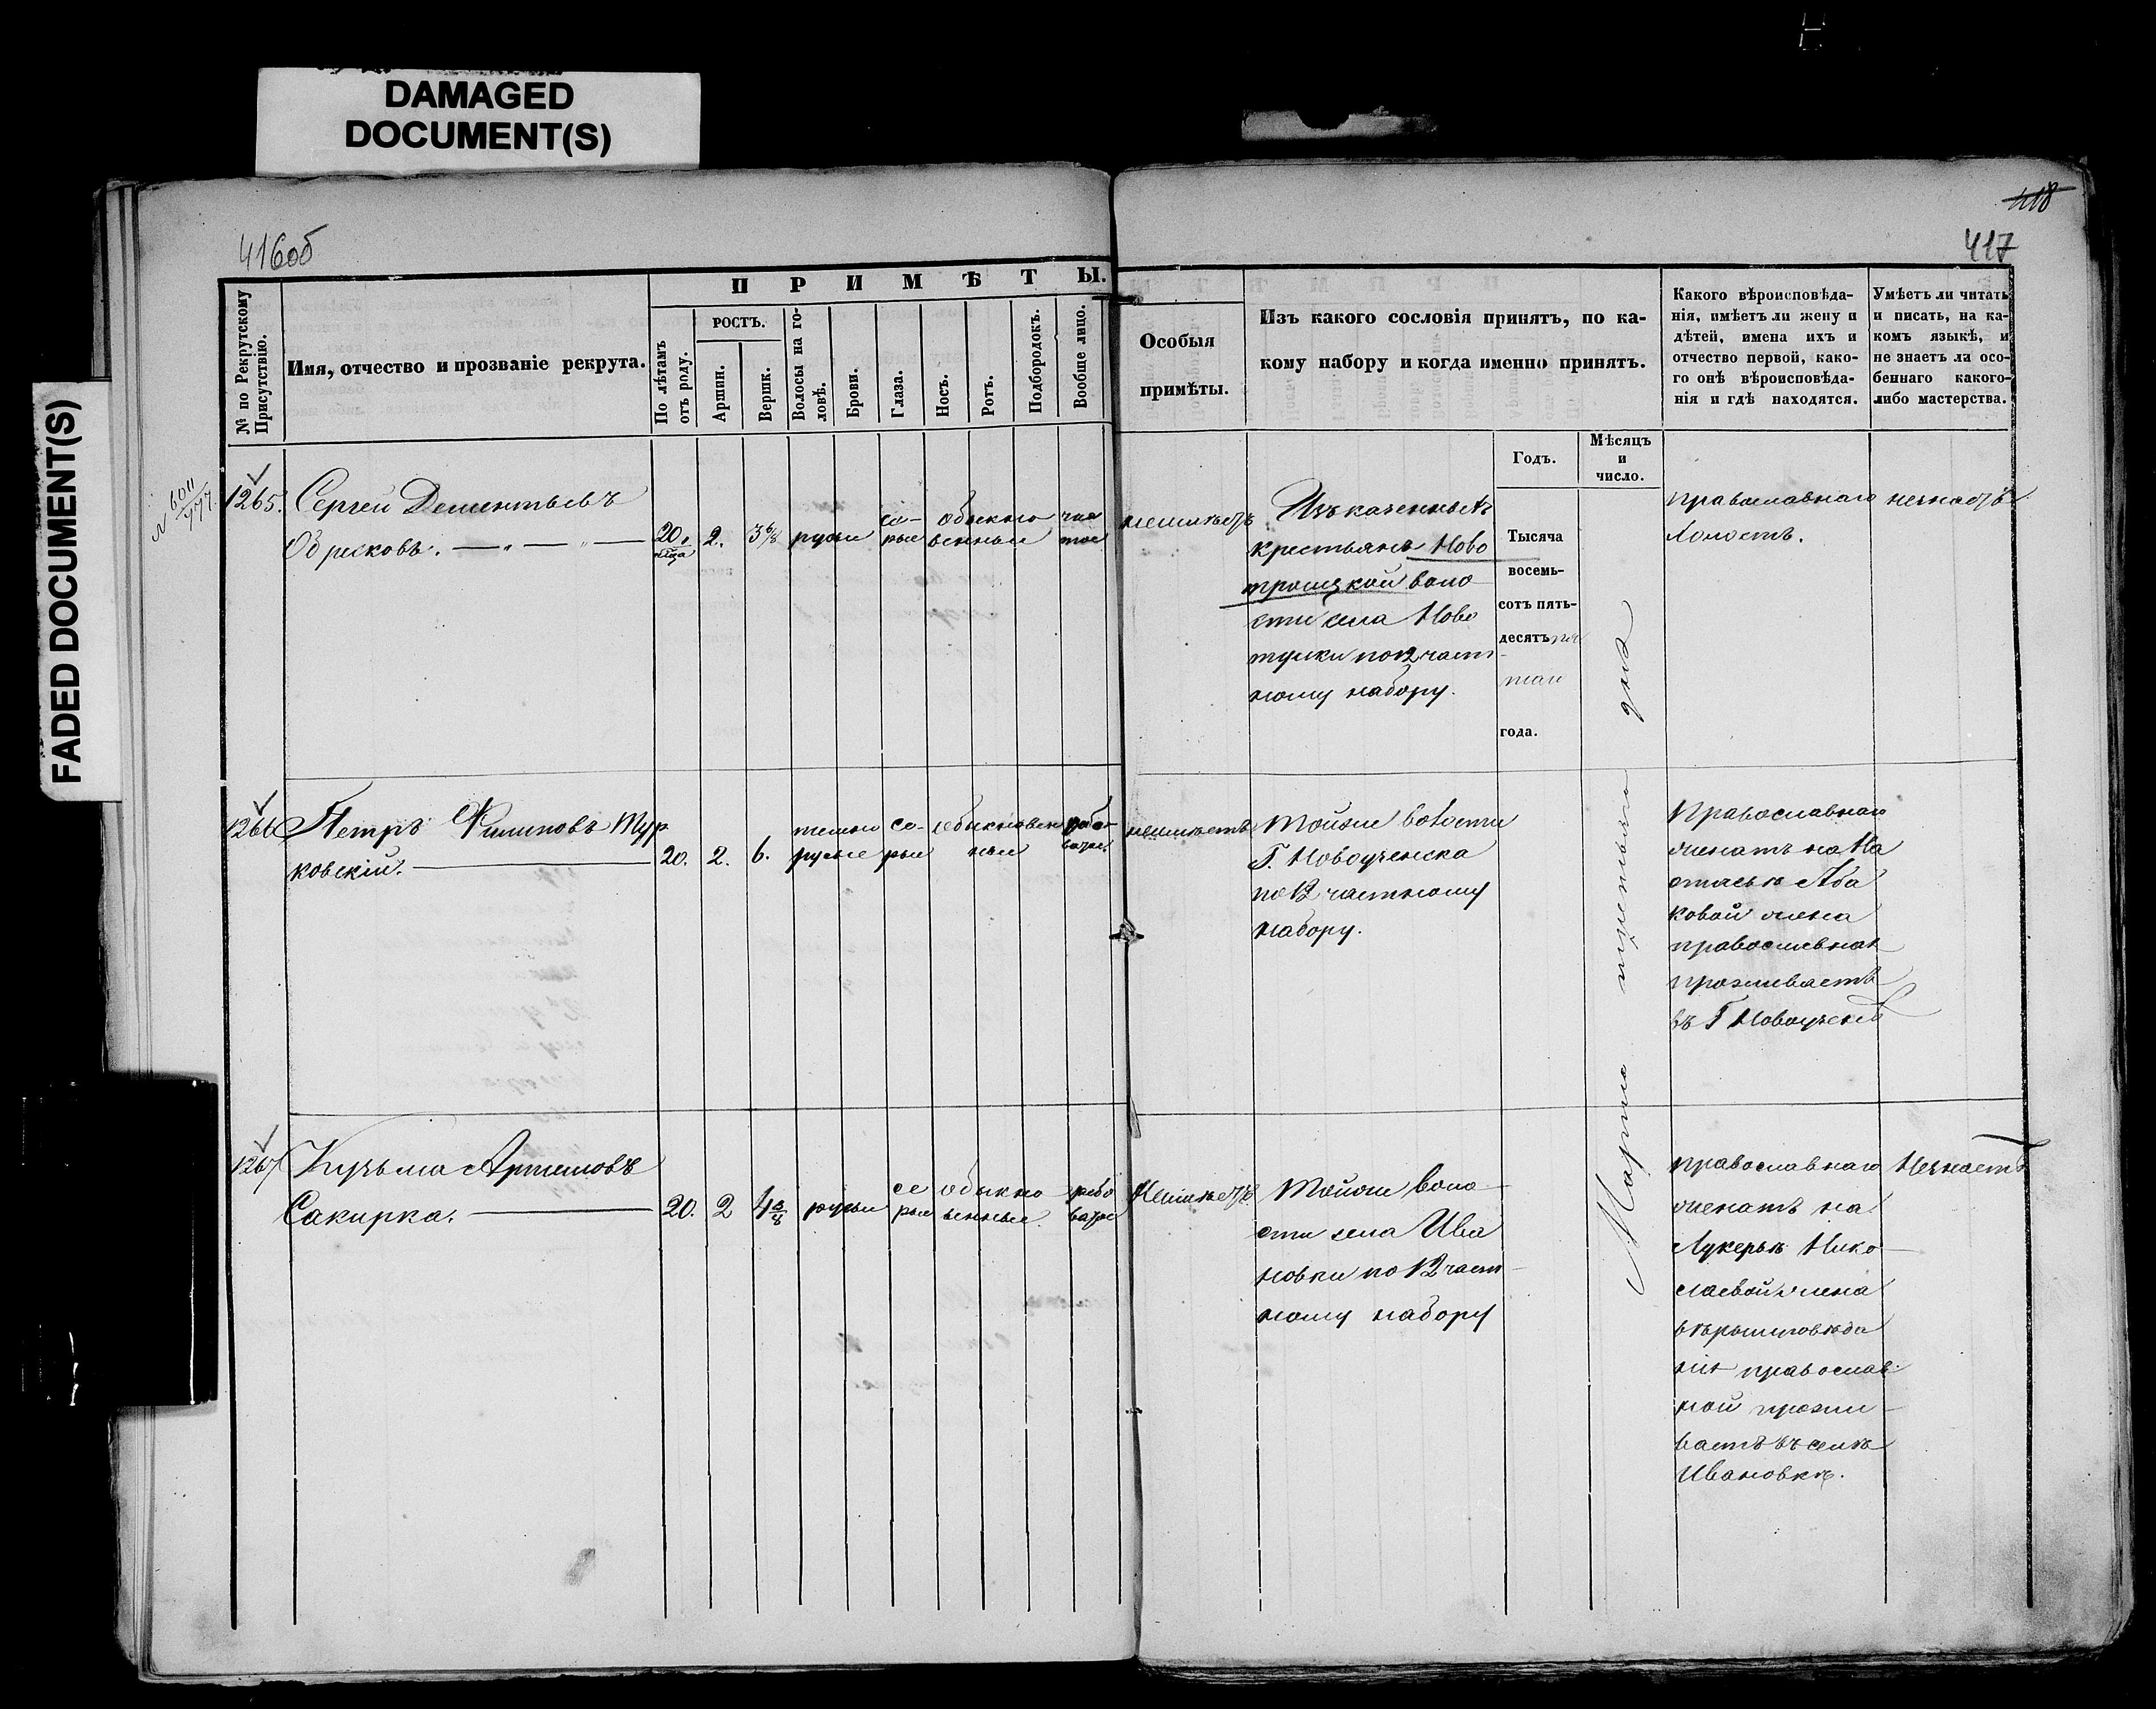 DAMAGED
DOCUMENT(S)
FADED DOCUMENT(S)
416об
418
417
№ по Рекрутскому
Присутствію.
Имя, отчество и прозваніе рекрута.
П Р И М Ѣ Т Ы.
По лѣтамъ
отъ роду.
РОСТЪ.
Аршин.
Вершк.
Волосы на го-
ловѣ.
Брови.
Глаза.
Носъ.
Ротъ.
Подбородокъ.
Вообще лицо.
Особыя
примѣты.
Изъ какого сословія принятъ, по ка-
кому набору и когда именно принятъ.
Какого вѣроисповѣда-
нія, имѣетъ ли жену и
дѣтей, имена ихъ и
отчество первой, како-
го онѣ вѣроисповѣда-
нія и гдѣ находятся.
Умѣетъ ли читать
и писать, на ка-
комъ языкѣ, и
не знаетъ ли осо-
беннаго какого-
либо мастерства.
Годъ.
Мѣсяцъ
и
число.
Тысяча
восемь-
сотъ пять-
десятъ пя
таи
года.
Марта третьяго дня
1265. Сергей Дементьевъ
Обрисковъ.
20, 2. 3 6/8 русые се- рые обыкно венные чис тое
неимѣетъ
Изъ казенныхъ
крестьянъ Ново
троицкой воло
сти села Ново
тулки по 12 част
ному набору.
православнаго
Холостъ.
незнаетъ
1266 Петръ Филиповъ Тур
ковскій.
20. 2. 6. темно русые се- рые обыкновен ные рябо ватое
неимѣетъ
Тойже волости
Г. Новоузенска
по 12 частному
набору.
Православнаго
женатъ на На
стасье Аба
ковой жена
православная
проживаетъ
въ Г Новоузенс
1267 Кузьма Артемовъ
Сакирка.
20. 2 4 3/8 русые се рые обыкно венные рябо ватое
Неимѣетъ
Тойже воло
сти села Ива
новки по 12 част
ному набору
православнаго
женатъ на
Лукерьѣ Нико
лаевой жена
вѣроисповѣда
нія православ
ной прожи
ваетъ въ селѣ
Ивановкѣ.
Незнаетъ